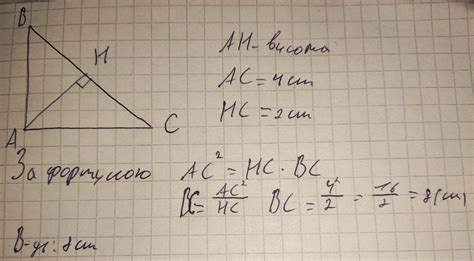 B
H
A
C
AH - висота
AC = 4 cm
HC = 2 cm
За формулою AC² = HC · BC
BC = AC²/HC BC = 4²/2 = 16/2 = 8 (cm)
В-дь: 8 cm